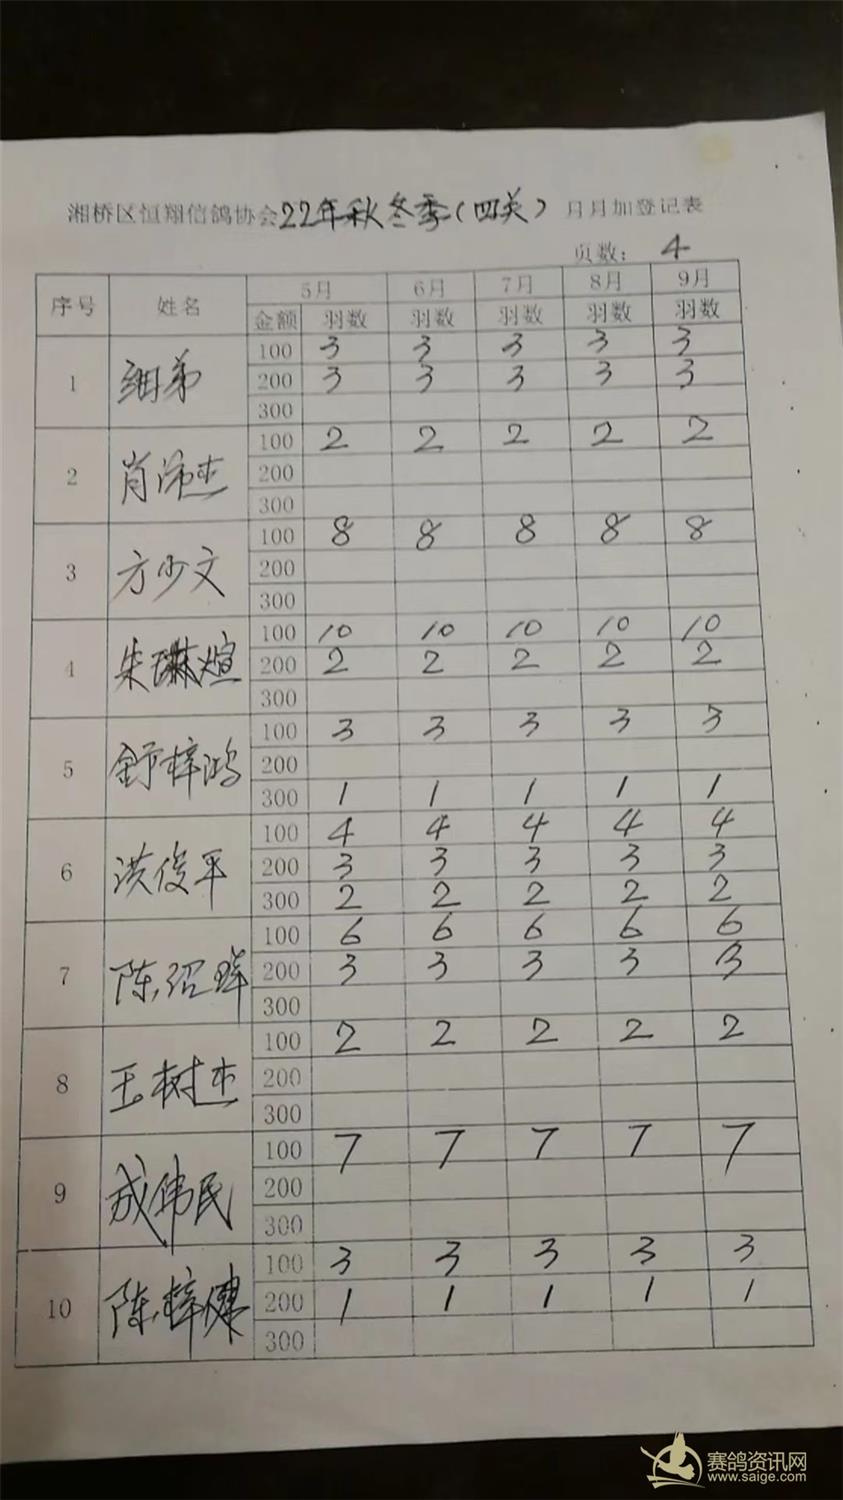 湘桥区恒翔信鸽协会22年秋冬季(四关)月月加登记表
页数: 4
序号 姓名 5月 6月 7月 8月 9月
金额 羽数 羽数 羽数 羽数 羽数
1 细弟 100 3 3 3 3 3
200 3 3 3 3 3
300
2 肖沛杰 100 2 2 2 2 2
200
300
3 方少文 100 8 8 8 8 8
200
300
4 朱琳煊 100 10 10 10 10 10
200 2 2 2 2 2
300
5 舒梓鸿 100 3 3 3 3 3
200
300 1 1 1 1 1
6 洪俊平 100 4 4 4 4 4
200 3 3 3 3 3
300 2 2 2 2 2
7 陈绍 100 6 6 6 6 6
200 3 3 3 3 3
300
8 王树杰 100 2 2 2 2 2
200
300
9 成伟民 100 7 7 7 7 7
200
300
10 陈梓健 100 3 3 3 3 3
200 1 1 1 1 1
300
赛鸽资讯网
www.saige.com